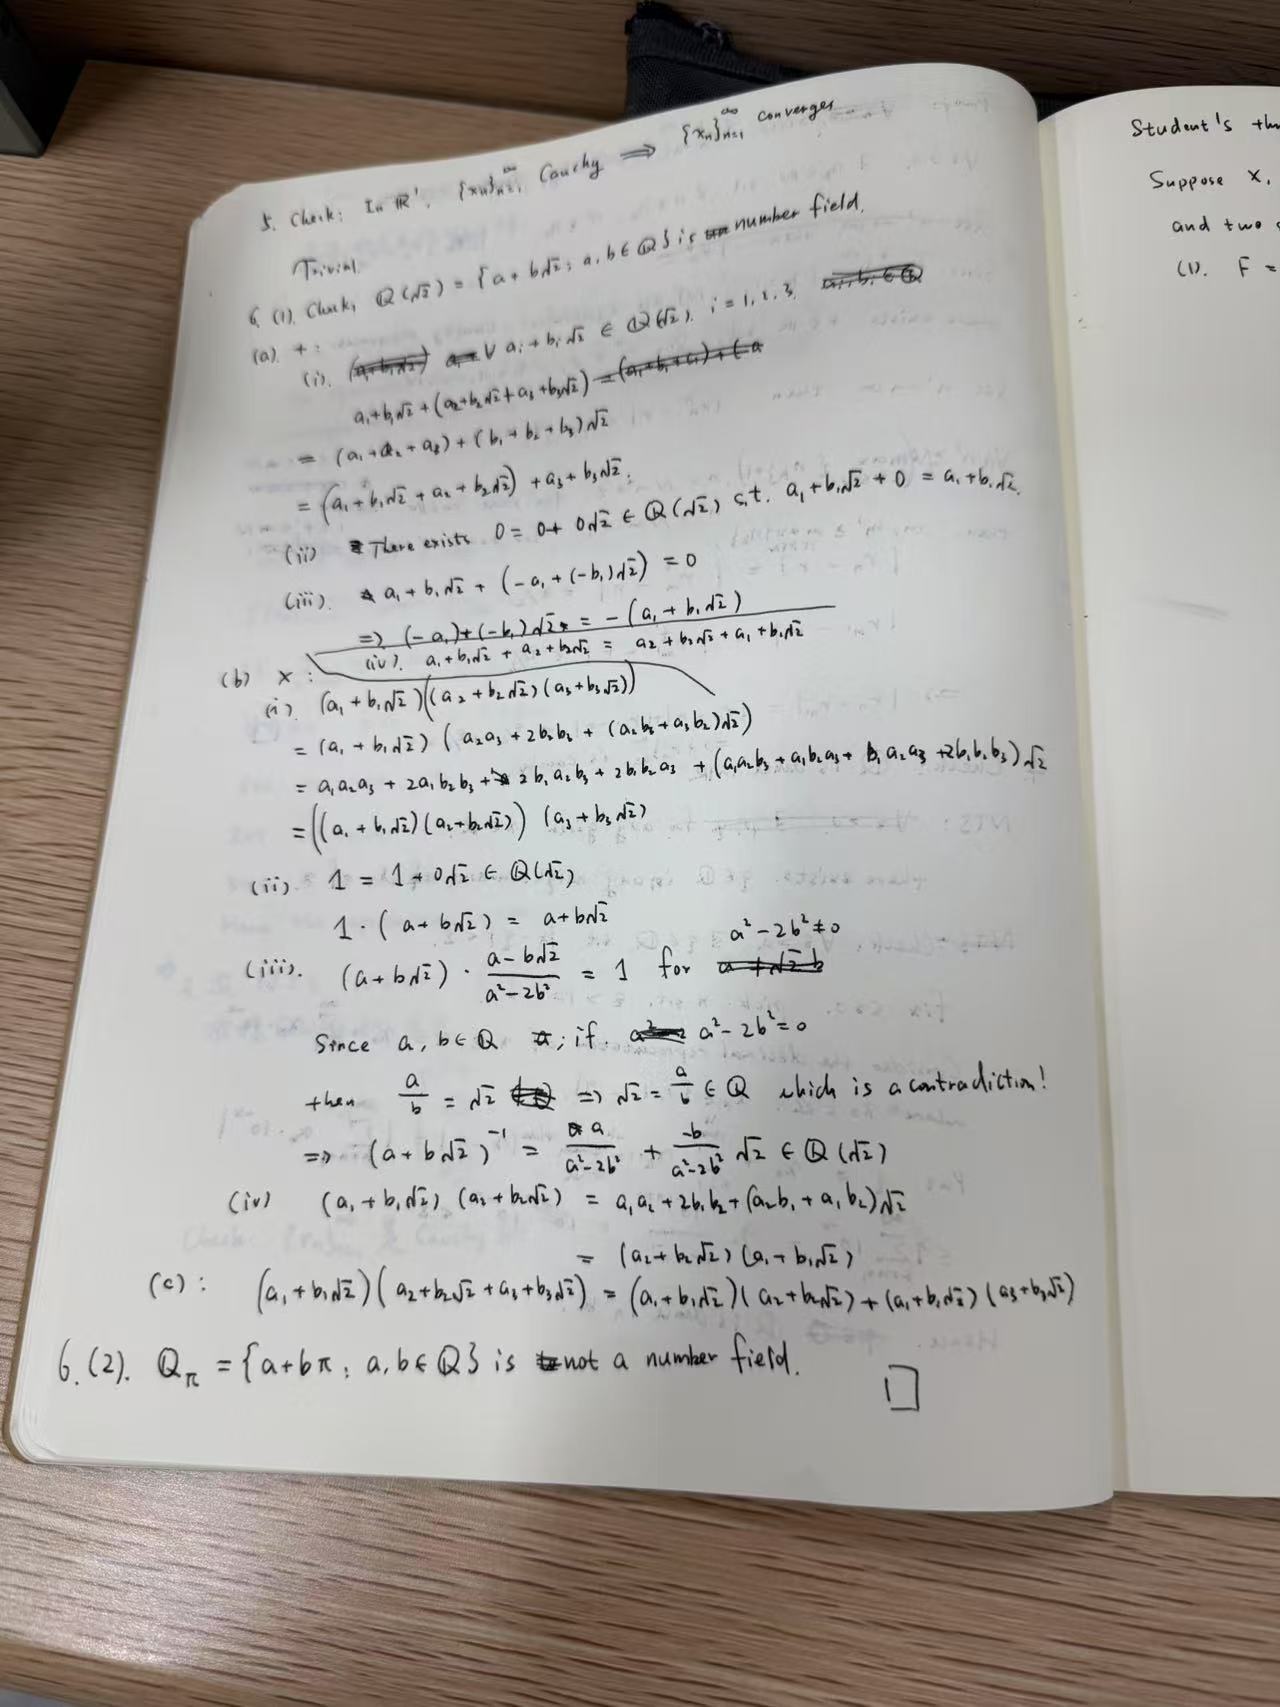 5. Check: In ℝ¹, {xₙ}ₙ₌₁^∞ Cauchy ⟹ {xₙ}ₙ₌₁^∞ converges
Trivial.
6. (1). Check, ℚ(√2) = {a + b√2 : a, b ∈ ℚ} is number field.
(a). + :
(i). ∀ aᵢ + bᵢ√2 ∈ ℚ(√2), i = 1, 2, 3.
a₁+b₁√2 + (a₂+b₂√2+a₃+b₃√2)
= (a₁+a₂+a₃) + (b₁+b₂+b₃)√2
= (a₁+b₁√2 + a₂+b₂√2) + a₃+b₃√2;
(ii) There exists 0 = 0+0√2 ∈ ℚ(√2) s.t. a₁+b₁√2 + 0 = a₁+b₁√2.
(iii). a₁+b₁√2 + (-a₁+(-b₁)√2) = 0
⟹ (-a₁)+(-b₁)√2 = -(a₁+b₁√2)
(iv). a₁+b₁√2 + a₂+b₂√2 = a₂+b₂√2 + a₁+b₁√2
(b) × :
(i). (a₁+b₁√2)((a₂+b₂√2)(a₃+b₃√2))
= (a₁+b₁√2) (a₂a₃ + 2b₂b₃ + (a₂b₃+a₃b₂)√2)
= a₁a₂a₃ + 2a₁b₂b₃ + 2b₁a₂b₃ + 2b₁b₂a₃ + (a₁a₂b₃ + a₁b₂a₃ + b₁a₂a₃ + 2b₁b₂b₃)√2
= ((a₁+b₁√2)(a₂+b₂√2)) (a₃+b₃√2)
(ii) 1 = 1+0√2 ∈ ℚ(√2)
1·(a+b√2) = a+b√2
(iii). (a+b√2) · (a-b√2)/(a²-2b²) = 1 for a²-2b²≠0
Since a, b ∈ ℚ ; if a²-2b²=0
then a/b = √2 ⟹ √2 = a/b ∈ ℚ which is a contradiction!
⟹ (a+b√2)⁻¹ = a/(a²-2b²) + -b/(a²-2b²) √2 ∈ ℚ(√2)
(iv) (a₁+b₁√2) (a₂+b₂√2) = a₁a₂+2b₁b₂+(a₂b₁+a₁b₂)√2
= (a₂+b₂√2)(a₁+b₁√2)
(c) : (a₁+b₁√2)(a₂+b₂√2+a₃+b₃√2) = (a₁+b₁√2)(a₂+b₂√2)+(a₁+b₁√2)(a₃+b₃√2)
6.(2). ℚ_π = {a+bπ : a, b ∈ ℚ} is not a number field.
□
Student's
Suppose X,
and two
(1). F =